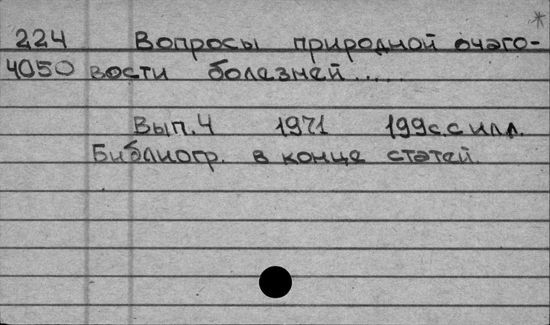 224 Вопросы природной очаго-
4050 вости болезней.....
Вып.4 1971 199с.с илл.
Библиогр. в конце статей.